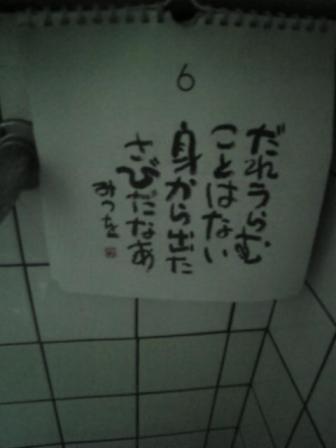 6
だれうらむ
ことはない
身から出た
さびだなあ
みつを